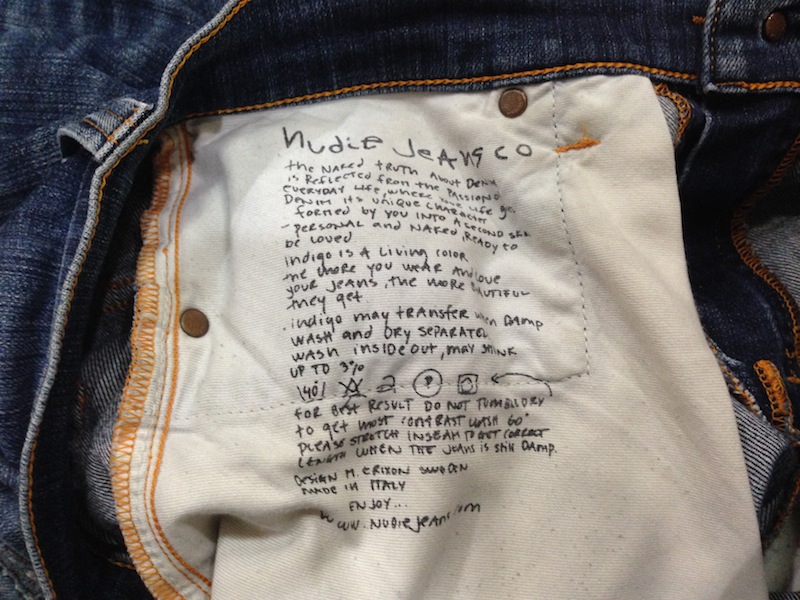 nudie jeans co
the NAKED truth About Denim
is Reflected from the PASSION
EVERYDAY life, where your life
DENIM its unique character
formed by you into A second
- PERSONAL and NAKED, READY to
be loved
indigo is A living color
the more you wear And love
your JEANS, the more BEAUTIFUL
they get
. indigo may tRANSFER when DAMP
WASH and DRY SEPARATEL
WASH inside out, may SHINK
UP TO 3%
40
FOR BEST RESULT DO NOT TUMBLE DRY
to get most CONTRAST WASH 60°
PLEASE STRETCH INSEAM TO GET CORRECT
LENGTH WHEN THE JEANS is still DAMP.
DESIGN M. ERIXON SWEDEN
MADE IN ITALY
ENJOY...
WWW.NUDIEJEANS.com